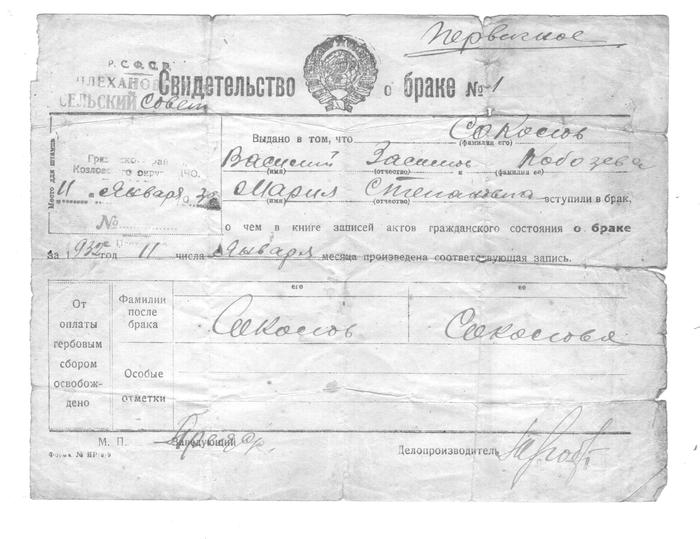 Первичное
Р. С. Ф. С. Р.
ПЛЕХАНОВ
СЕЛЬСКИЙ Совет
Свидетельство о браке № 1
Место для штампа
Козловского округа
11 Января 32
№
Выдано в том, что Сокослов
(фамилия его)
Василий Засимов Кобозева
(имя) (отчество) и (фамилия ее)
Мария Степановна вступили в брак,
(имя) (отчество)
о чем в книге записей актов гражданского состояния о браке
за 1932 год 11 числа Января месяца произведена соответствующая запись.
От оплаты гербовым сбором освобождено
Фамилии после брака
его
ее
Сокослов
Сокослова
Особые отметки
М. П. Заведующий
Делопроизводитель
Форма №